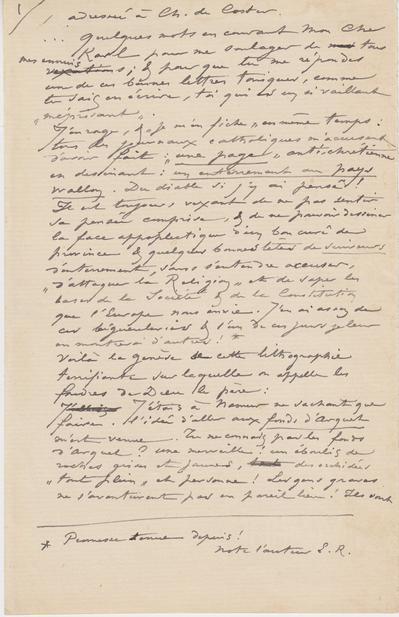 1/ , adressée à Ch. de Coster.
... quelques mots en courant mon cher
Karl pour me soulager de tous
mes ennuis ; & pour que tu me répondes
une de ces bonnes lettres toniques, comme
tu sais en écrire, toi qui es un si vaillant
"méprisant".
J'enrage, & je m'en fiche, en même temps :
tous les journaux catholiques m'accusent
d'avoir fait : "une page" antichrétienne
en dessinant : un enterrement au pays
wallon. Du diable si j'y ai pensé !
Il est toujours vexant de ne pas sentir
sa pensée comprise, & de ne pouvoir dessiner
la face appoplectique d'un bon curé de
province & quelques bonnes têtes de suiveurs
d'enterrement, sans s'entendre accuser,
"d'attaquer la Religion" et de saper les
bases de la Société & de la Constitution
que l'Europe nous envie. J'en ai assez de
ces & l'un de ces jours je leur
en montrerai d'autres ! *
Voilà la genèse de cette lithographie
terrifiante sur laquelle on appelle les
foudres de Dieu le père :
J'étais à Namur ne sachant que
faire. L'idée d'aller aux fonds d'Arquet
m'est venue. Tu ne connais pas les fonds
d'Arquet ? une merveille ! un éboulis de
roches grises et jaunes, des orchidées
"tout plein" et personne ! Les gens graves
ne s'aventurent pas en pareil lieu. Ils vont
* Promesse tenue depuis !
note l'auteur F. R.